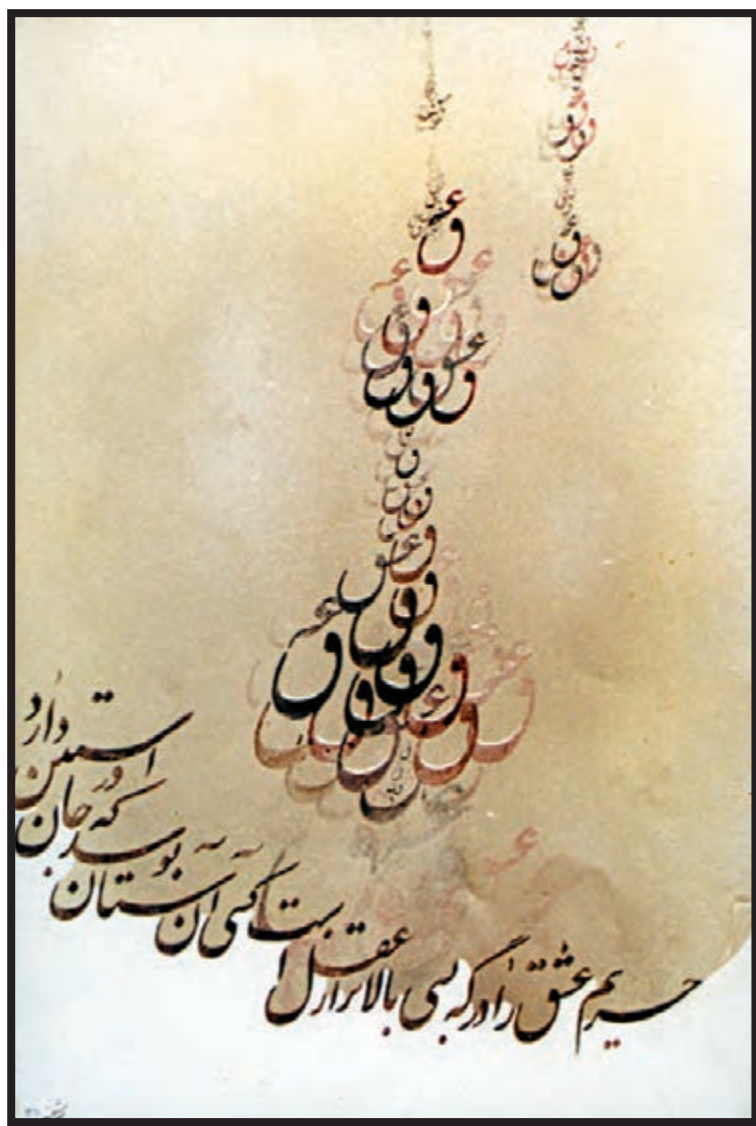 عشق
حریم عشق را درگه بسی بالاتر از عقل است
کسی آن آستان بوسد که جان در آستین دارد